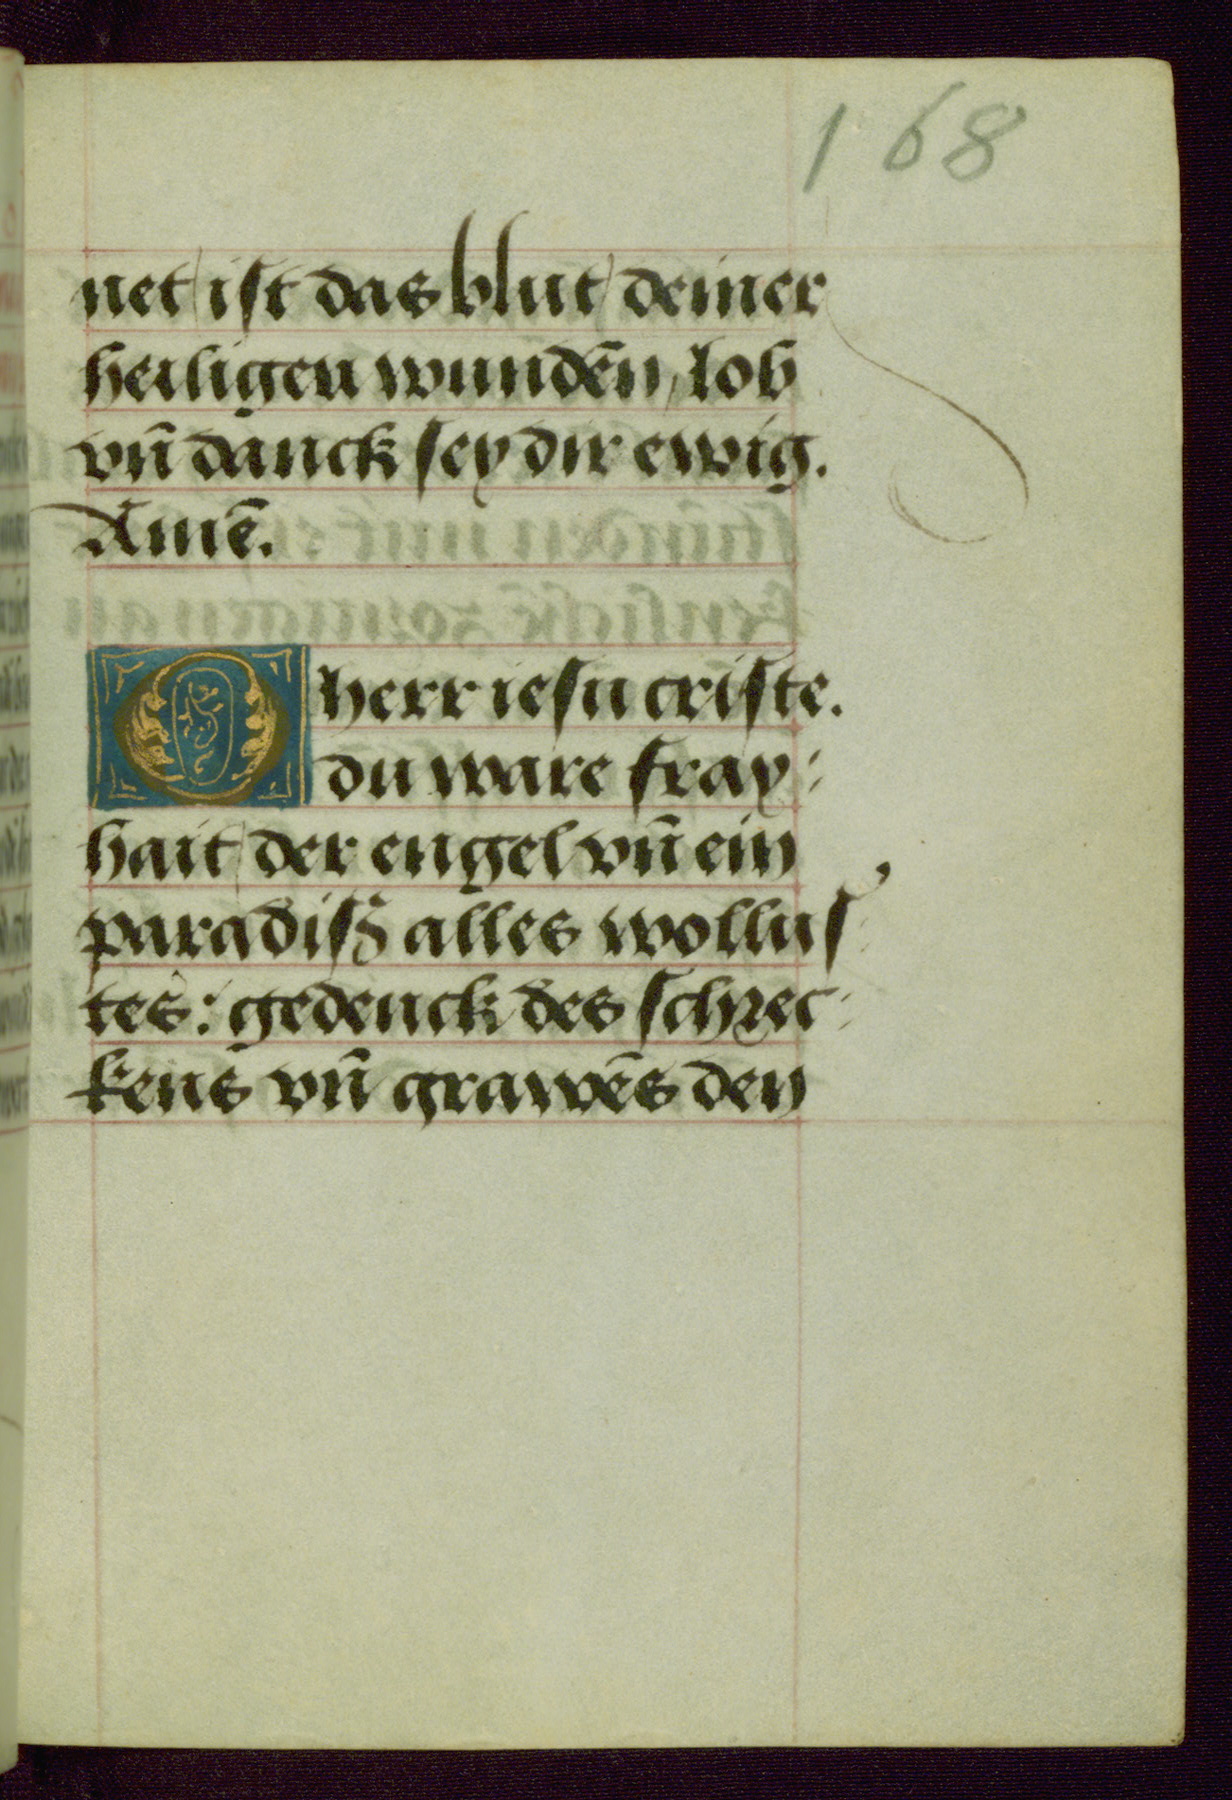 168
net ist das blut deiner
heiligen wunden, lob
vn̄ danck sey dir ewig.
Amē.
O herr iesu criste.
du ware fray:
hait der engel vn̄ ein
paradisz alles wollus
tes: gedenck des schrec
kens vn̄ grawēs den